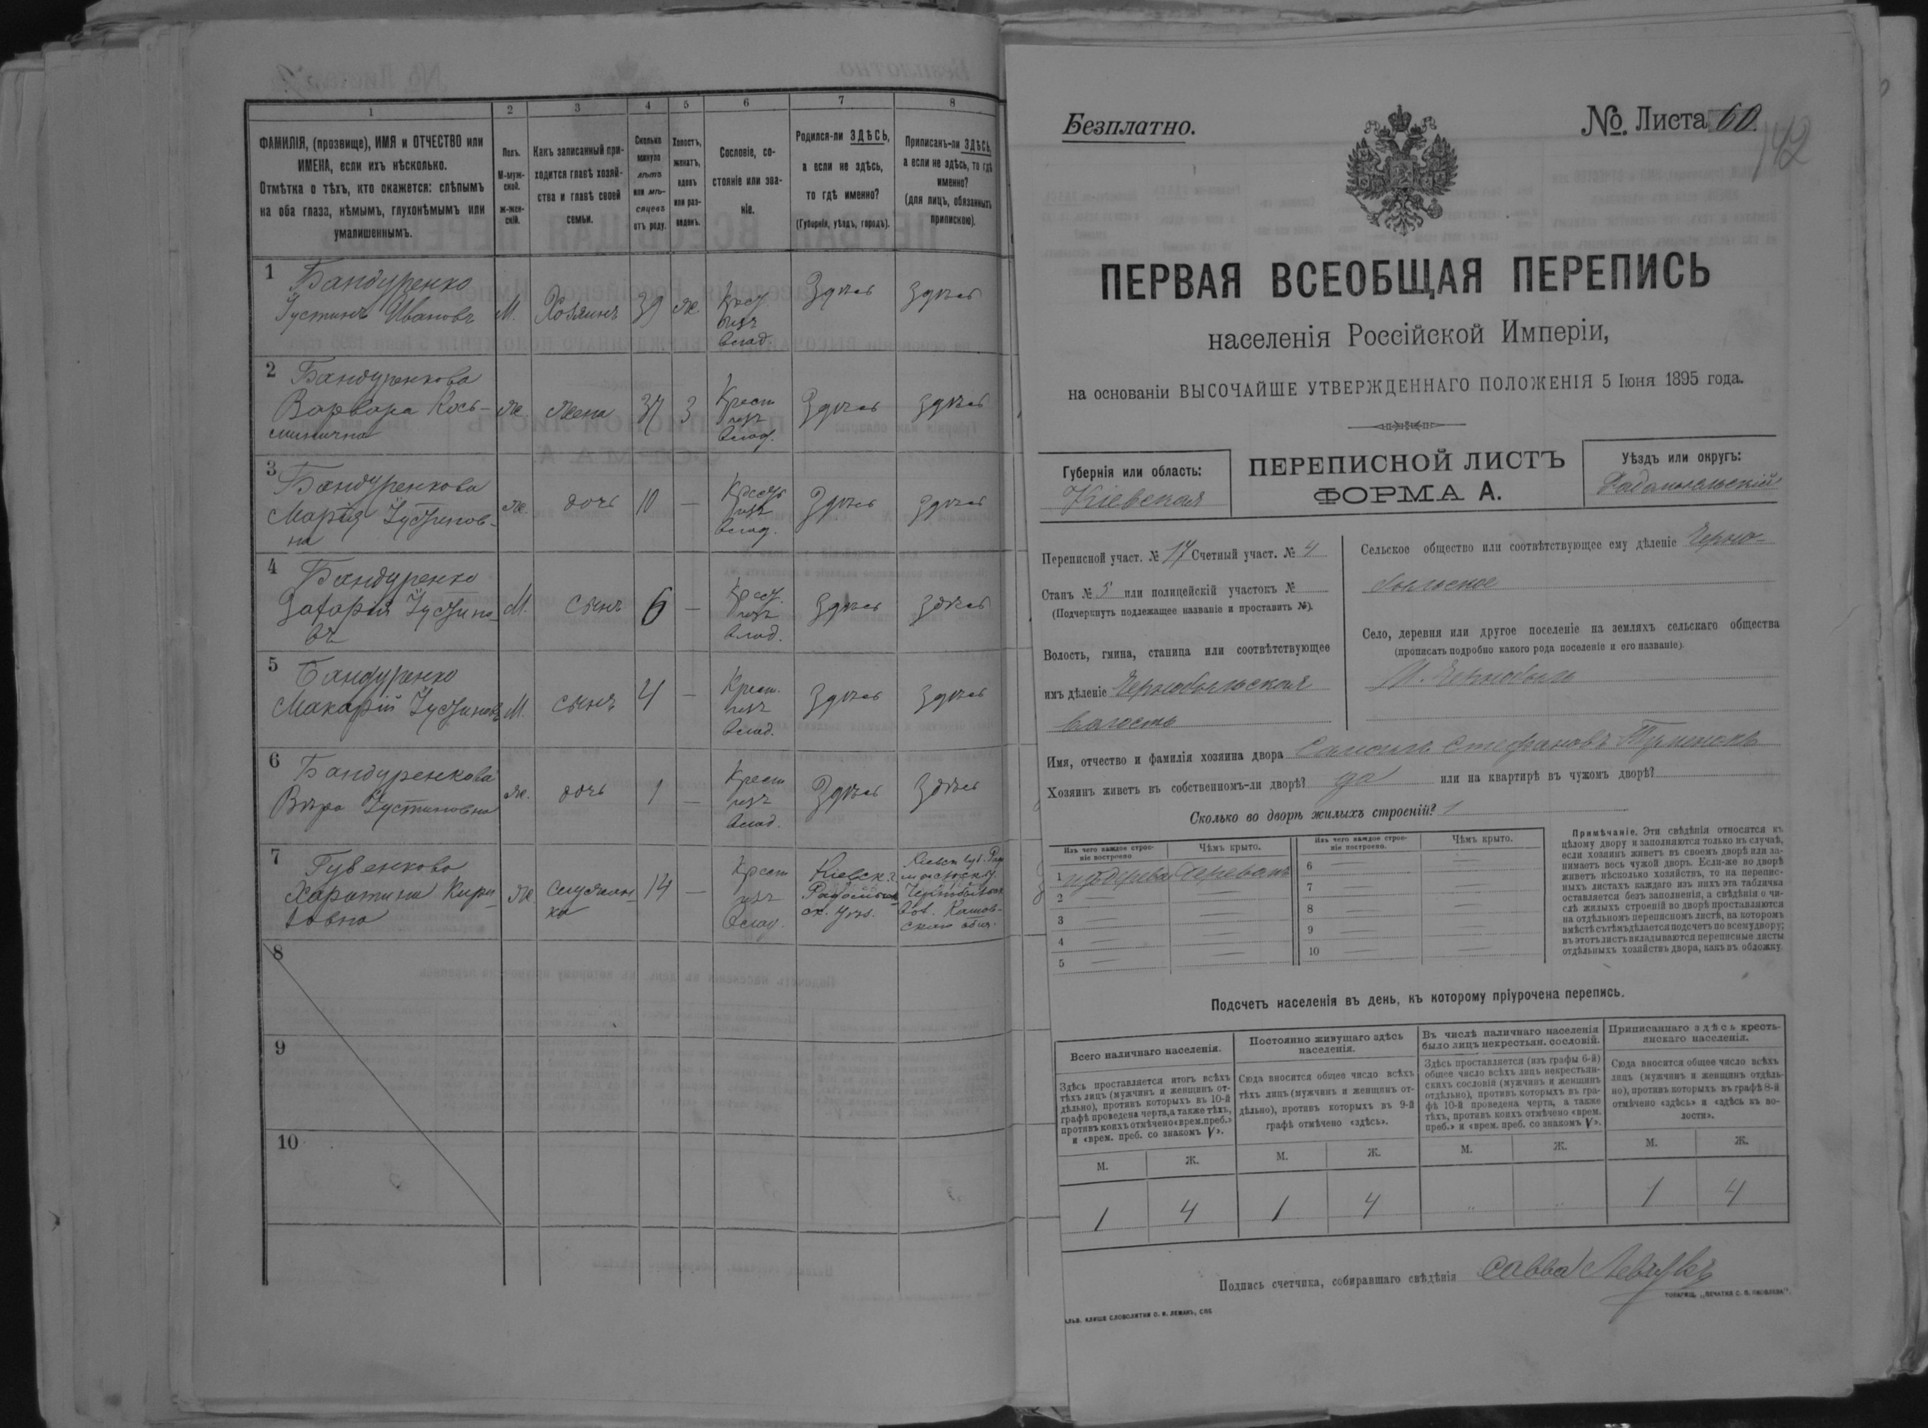 1
2
3
4
5
6
7
8
ФАМИЛІЯ, (прозвище), ИМЯ и ОТЧЕСТВО или
ИМЕНА, если ихъ нѣсколько.
Отмѣтка о тѣхъ, кто окажется: слѣпымъ
на оба глаза, нѣмымъ, глухонѣмымъ или
умалишеннымъ.
Полъ.
М-муж-
ской.
ж-жен-
скій.
Какъ записанный при-
ходится главѣ хозяй-
ства и главѣ своей
семьи.
Сколько
минуло
лѣтъ
или мѣ-
сяцевъ
отъ роду.
Холостъ,
женатъ,
вдовъ
или раз-
веденъ.
Сословіе, со-
стояніе или зва-
ніе.
Родился-ли ЗДѢСЬ,
а если не здѣсь,
то гдѣ именно?
(Губернія, уѣздъ, городъ).
Приписанъ-ли ЗДѢСЬ,
а если не здѣсь, то гдѣ
именно?
(для лицъ, обязанныхъ
припискою).
1
Бандуренко
Іустинъ Ивановъ
М.
Хозяинъ
39
ж.
Крест.
изъ
влад.
Здѣсь
Здѣсь
2
Бандуренкова
Варвара Кось-
минична
ж
жена
37
З
Крест
изъ
влад.
Здѣсь
Здѣсь
3
Бандуренкова
Марія Іустинов-
на
ж.
дочь
10
—
Крест
изъ
влад.
Здѣсь
Здѣсь
4
Бандуренко
Захарій Іустино-
въ
М.
сынъ
6
—
Крест.
изъ
влад.
Здѣсь
Здѣсь
5
Бандуренко
Макарій Іустиновъ
М.
сынъ
4
—
Крест.
изъ
влад.
Здѣсь
Здѣсь
6
Бандуренкова
Вѣра Іустиновна
ж.
дочь
1
—
Крест
изъ
влад.
Здѣсь
Здѣсь
7
Харитина Кири-
ловна
ж
14
—
Крест
изъ
влад.
Кіевск.
8
9
10
Безплатно.
№. Листа 60.
142
ПЕРВАЯ ВСЕОБЩАЯ ПЕРЕПИСЬ
населенія Россійской Имперіи,
на основаніи ВЫСОЧАЙШЕ УТВЕРЖДЕННАГО ПОЛОЖЕНІЯ 5 Іюня 1895 года.
Губернія или область:
Кіевская
ПЕРЕПИСНОЙ ЛИСТЪ
ФОРМА А.
Уѣздъ или округъ:
Радомысльскій
Переписной участ. № 17 Счетный участ. № 4
Станъ № 5 или полицейскій участокъ №
(Подчеркнуть подлежащее названіе и проставить №).
Волость, гмина, станица или соотвѣтствующее
имъ дѣленіе Чернобыльская
волость
Сельское общество или соотвѣтствующее ему дѣленіе Черно-
быльское
Село, деревня или другое поселеніе на земляхъ сельскаго общества
(прописать подробно какого рода поселеніе и его названіе).
М. Чернобыль
Имя, отчество и фамилія хозяина двора Стефановъ
Хозяинъ живетъ въ собственномъ-ли дворѣ? да или на квартирѣ въ чужомъ дворѣ?
Сколько во дворѣ жилыхъ строеній? 1
Изъ чего каждое строе-
ніе построено.
Чѣмъ крыто.
Изъ чего каждое строе-
ніе построено.
Чѣмъ крыто.
1 изъ дерева
2
3
4
5
6
7
8
9
10
Примѣчаніе. Эти свѣдѣнія относятся къ
цѣлому двору и заполняются только въ случаѣ,
если хозяинъ живетъ въ своемъ дворѣ или за-
нимаетъ весь чужой дворъ. Если-же во дворѣ
живетъ нѣсколько хозяйствъ, то на перепис-
ныхъ листахъ каждаго изъ нихъ эта табличка
оставляется безъ заполненія, а свѣдѣнія о чи-
слѣ жилыхъ строеній во дворѣ проставляются
на отдѣльномъ переписномъ листѣ, на которомъ
вмѣстѣ съ тѣмъ дѣлается подсчетъ по всему двору;
въ этотъ листъ вкладываются переписные листы
отдѣльныхъ хозяйствъ двора, какъ въ обложку.
Подсчетъ населенія въ день, къ которому пріурочена перепись.
Всего наличнаго населенія.
Постоянно живущаго здѣсь
населенія.
Въ числѣ наличнаго населенія
было лицъ некрестьян. сословій.
Приписаннаго здѣсь кресть-
янскаго населенія.
Здѣсь проставляется итогъ всѣхъ
тѣхъ лицъ (мужчинъ и женщинъ от-
дѣльно), противъ которыхъ въ 10-й
графѣ проведена черта, а также тѣхъ,
противъ коихъ отмѣчено «врем. преб.»
и «врем. преб. со знакомъ V».
Сюда вносится общее число всѣхъ
тѣхъ лицъ (мужчинъ и женщинъ от-
дѣльно), противъ которыхъ въ 9-й
графѣ отмѣчено «здѣсь».
Здѣсь проставляется (изъ графы 6-й)
общее число всѣхъ лицъ некрестьян-
скихъ сословій (мужчинъ и женщинъ
отдѣльно), противъ которыхъ въ гра-
фѣ 10-й проведена черта, а также
тѣхъ, противъ коихъ отмѣчено «врем.
преб.» и «врем. преб. со знакомъ V».
Сюда вносится общее число всѣхъ
лицъ (мужчинъ и женщинъ отдѣль-
но), противъ которыхъ въ графѣ 8-й
отмѣчено «здѣсь» и «здѣсь въ во-
лости».
М.
Ж.
М.
Ж.
М.
Ж.
М.
Ж.
1
4
1
4
"
"
1
4
Подпись счетчика, собиравшаго свѣдѣнія Савва
АЛЬВ. КЛИШЕ СЛОВОЛИТНИ О. И. ЛЕМАНЪ, СПБ
ТОВАРИЩ. „ПЕЧАТНИ С. П. ЯКОВЛЕВА".